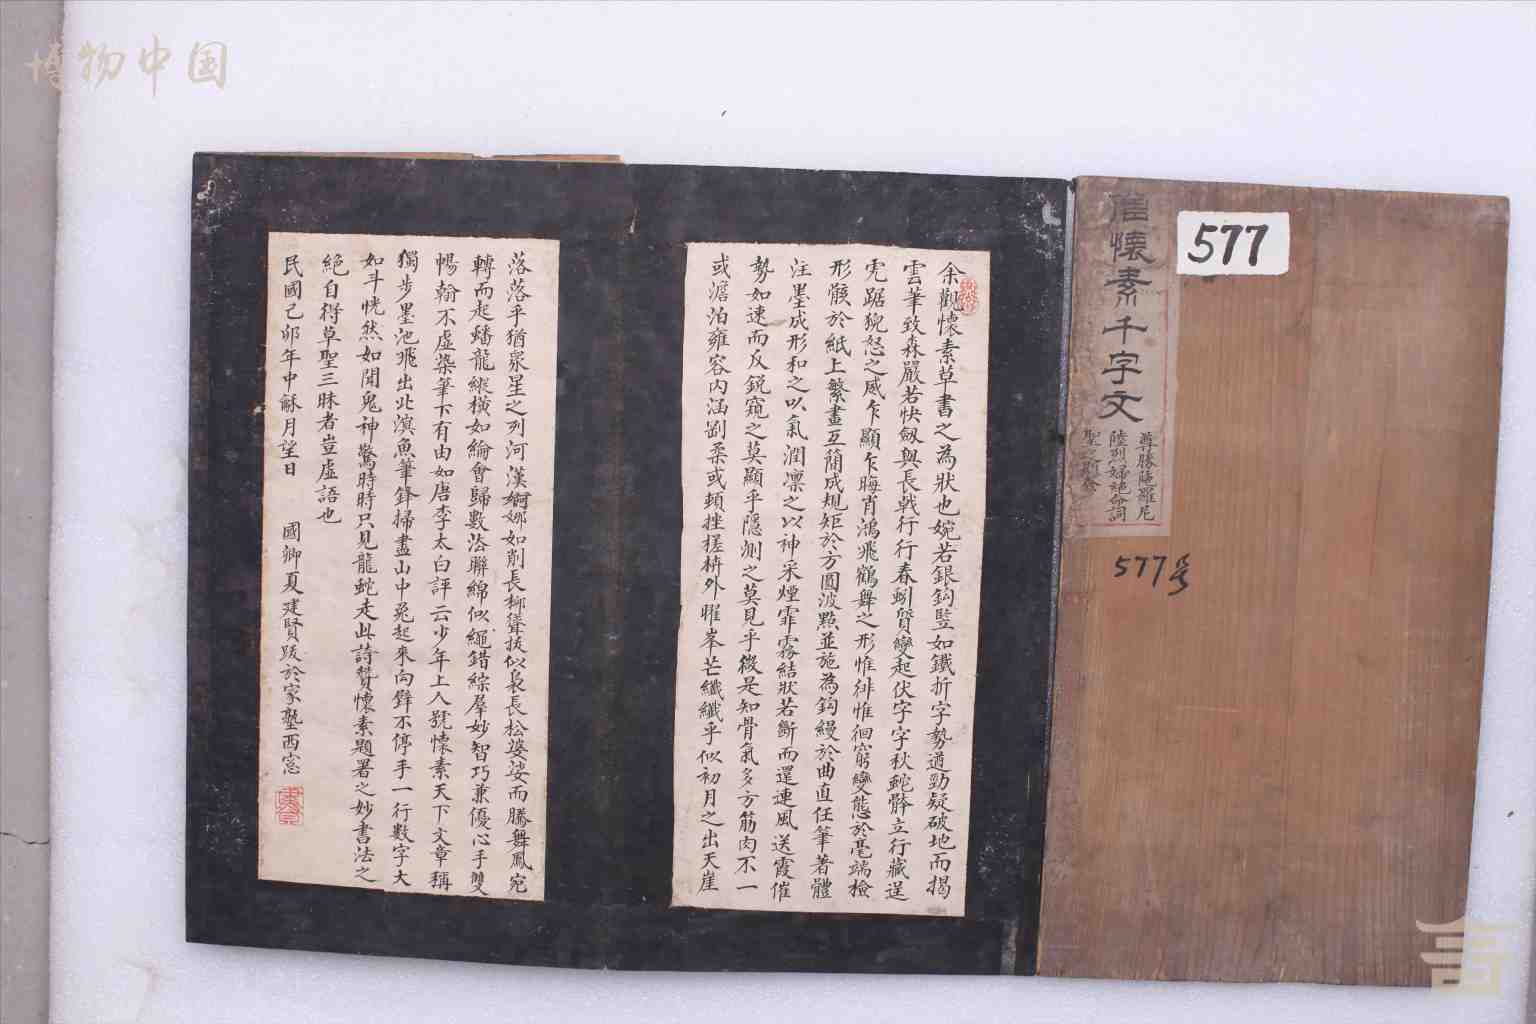 博物中国
577
懷素千字文
尊勝陀羅尼
陸列婦絕命詞
577号
余觀懷素草書之為狀也婉若銀鈎竪如鐵折字勢遒勁疑破地而揭
雲筆致森嚴若快劔與長戟行行春蚓質變起伏字字秋蛇骵立行藏逞
虎踞猊怒之威乍顯乍晦肖鴻飛鶴舞之形惟徘惟徊窮變態於毫端檢
形骸於紙上繁畫互簡成規矩於方圓波點並施為鈎縵於曲直任筆著體
注墨成形和之以氣潤凛之以神采煙霏霧結狀若斷而還連風送霞催
勢如速而反銳窺之莫顯乎隱測之莫見乎微是知骨氣多方筋肉不一
或澹泊雍容內涵剛柔或頓挫槎枿外曜峯芒纖纖乎似初月之出天崖
落落乎猶衆星之列河漢婀娜如削長柳聳拔似裊長松婆娑而騰舞鳳宛
轉而起蟠龍縱橫如綸會歸數沿聯綿似繩錯綜羣妙智巧兼優心手雙
暢翰不虛染筆下有由如唐李太白評云少年上人號懷素天下文章稱
獨步墨池飛出北溟魚筆鋒掃盡山中兔起來向壁不停手一行數字大
如斗恍然如聞鬼神驚時時只見龍蛇走此詩贊懷素題署之妙書法之
絕自得草聖三昧者豈虛語也
民國己卯年中龢月望日 國卿夏建賢跋於家塾西窓